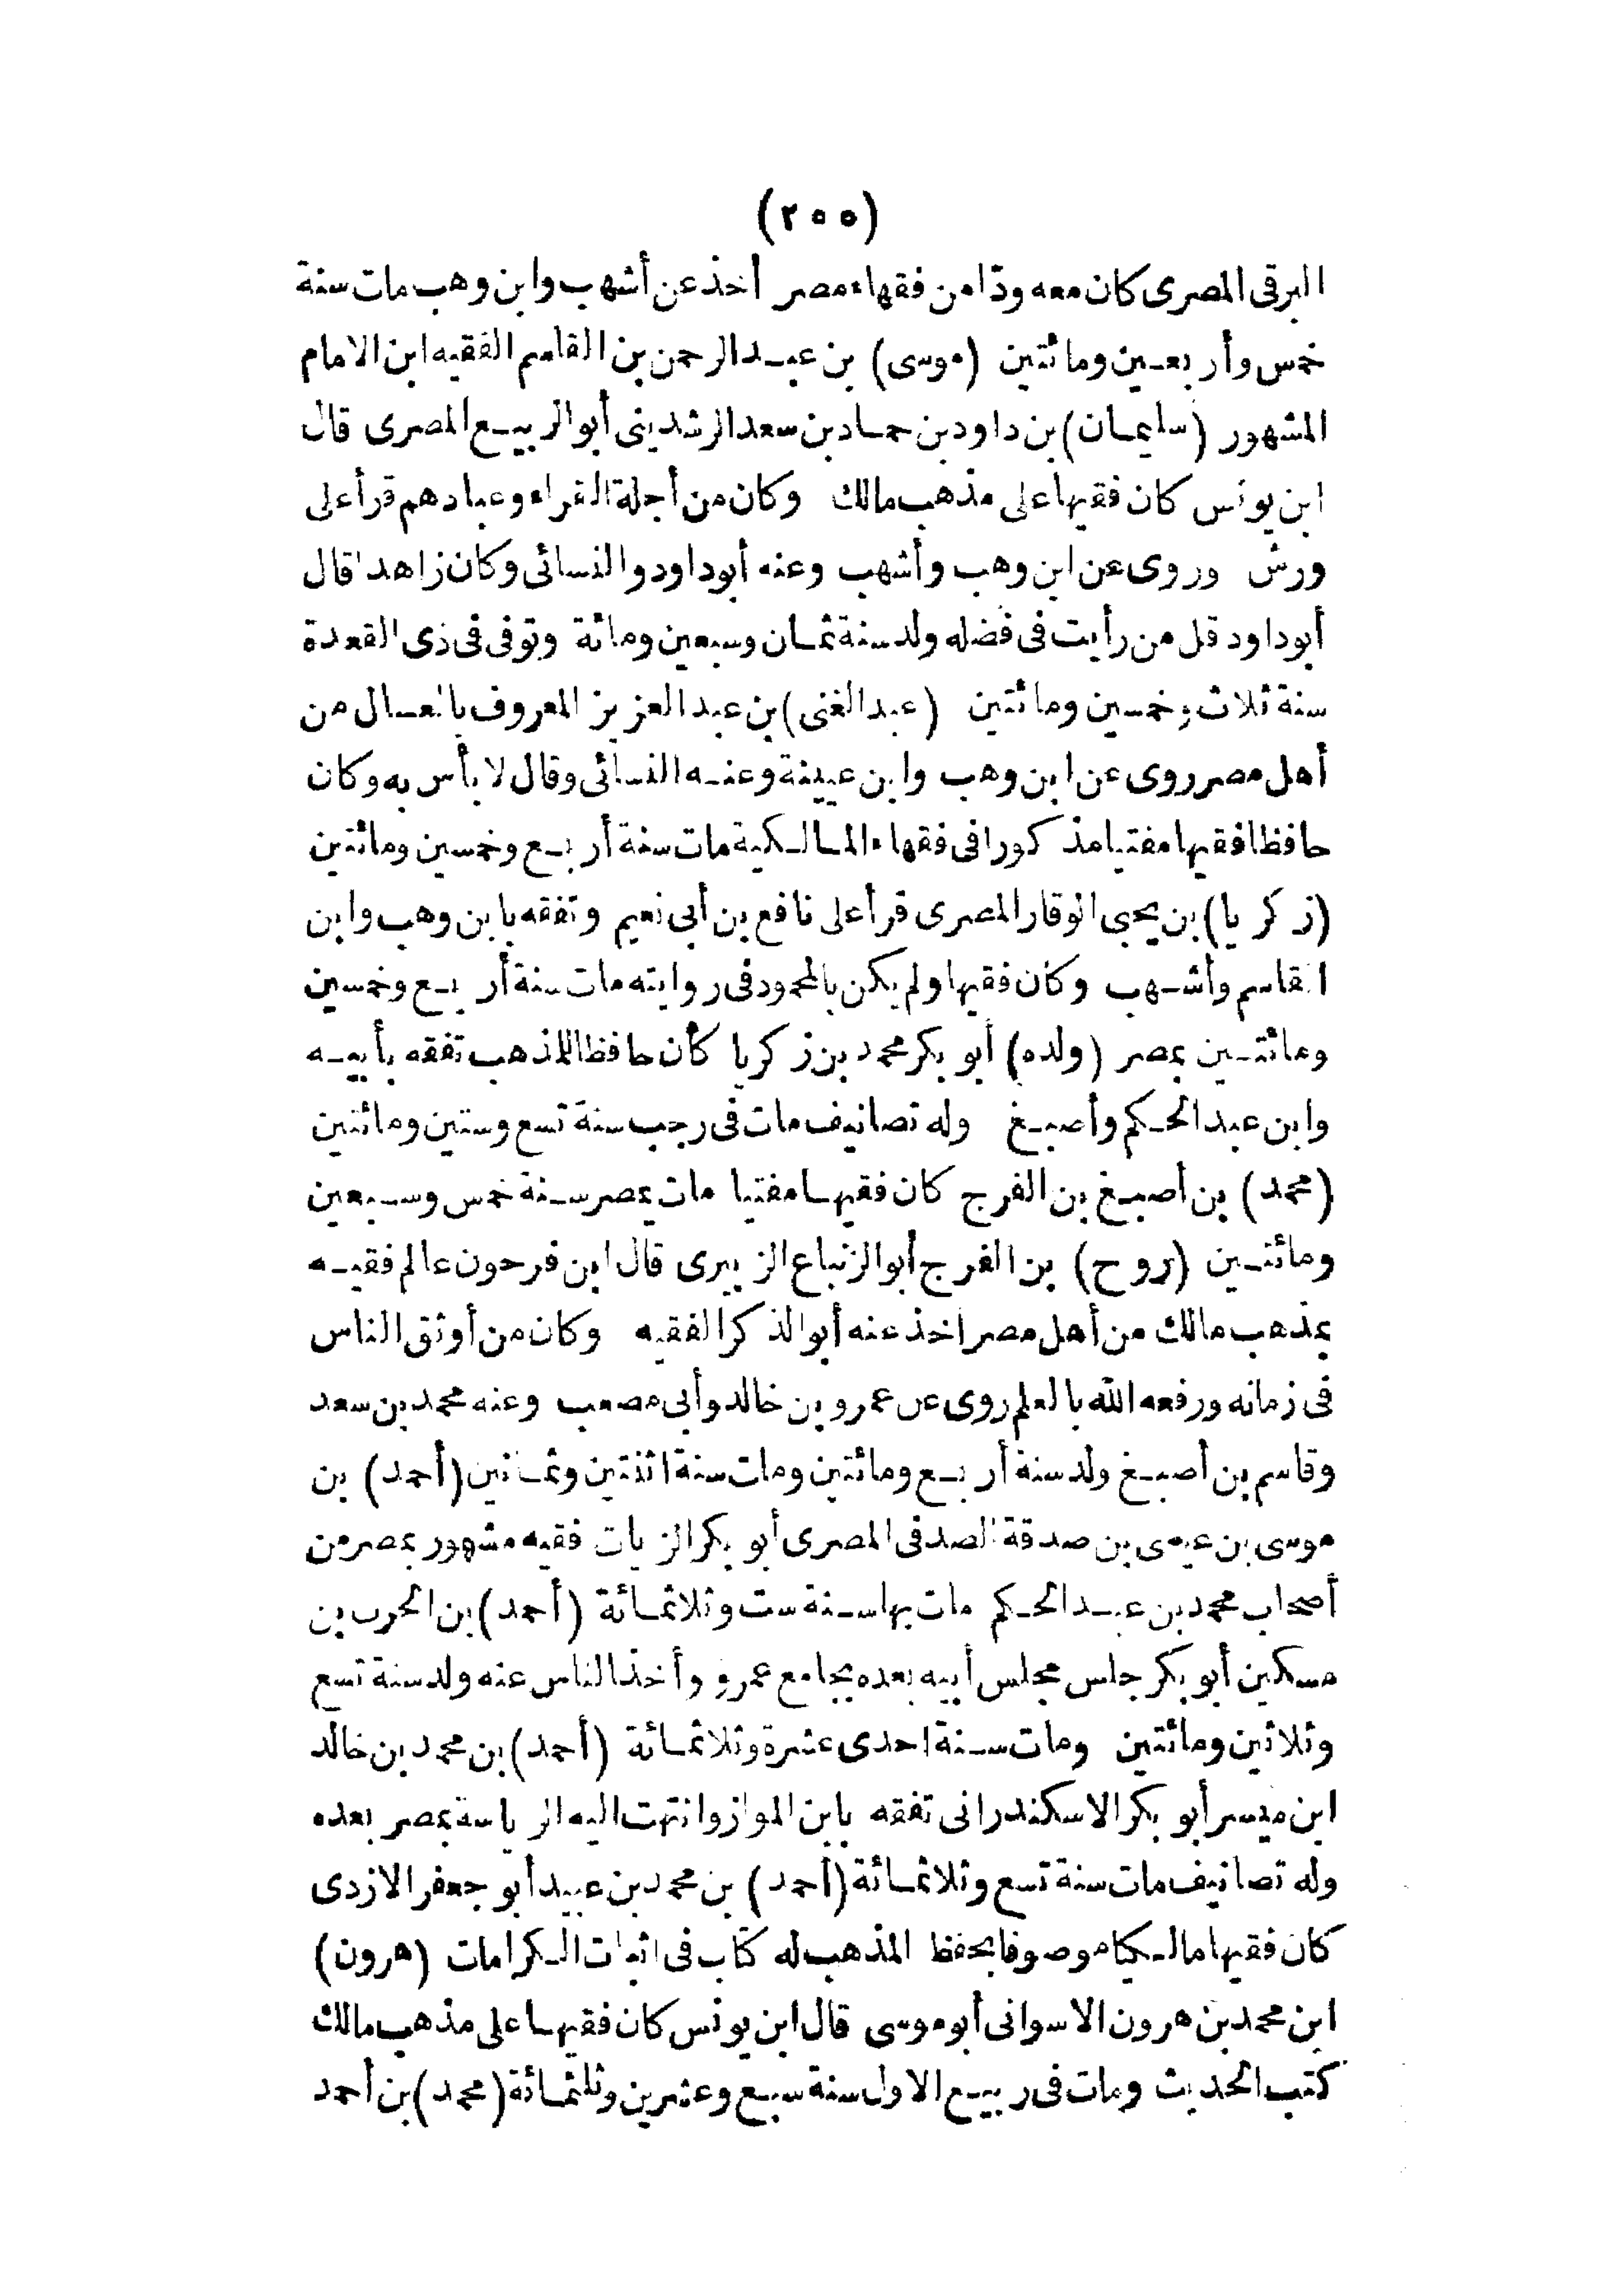 (٢٥٥)
البرقى المصرى كان معدودا من فقهاء مصر أخذ عن أشهب وابن وهب مات سنة
خمس وأربعين ومائتين (موسى) بن عبد الرحمن بن القاسم الفقيه ابن الامام
المشهور (سليمان) بن داود بن حماد بن سعد الرشدينى أبو الربيع المصرى قال
ابن يونس كان فقيها على مذهب مالك وكان من أجلة القراء وعبادهم قرأ على
ورش وروى عن ابن وهب وأشهب وعنه أبو داود والنسائى وكان زاهدا قال
أبو داود قل من رأيت فى فضله ولد سنة ثمان وسبعين ومائة وتوفى فى ذى القعدة
سنة ثلاث وخمسين ومائتين (عبد الغنى) بن عبد العزيز المعروف بالعسال من
أهل مصر روى عن ابن وهب وابن عيينة وعنه النسائى وقال لا بأس به وكان
حافظا فقيها مفتيا مذكورا فى فقهاء المالكية مات سنة أربع وخمسين ومائتين
(زكريا) بن يحيى الوقار المصرى قرأ على نافع بن أبى نعيم وتفقه بابن وهب وابن
القاسم وأشهب وكان فقيها ولم يكن بالمحمود فى روايته مات سنة أربع وخمسين
ومائتين بمصر (ولده) أبو بكر محمد بن زكريا كان حافظا للمذهب تفقه بأبيه
وابن عبد الحكم وأصبغ وله تصانيف مات فى رجب سنة تسع وستين ومائتين
(محمد) بن أصبغ بن الفرج كان فقيها مفتيا مات بمصر سنة خمس وسبعين
ومائتين (روح) بن الفرج أبو الزنباع الزبيرى قال ابن فرحون عالم فقيه
بمذهب مالك من أهل مصر أخذ عنه أبو الذكر الفقيه وكان من أوثق الناس
فى زمانه ورفعه الله بالعلم روى عن عمرو بن خالد وأبى مصعب وعنه محمد بن سعد
وقاسم بن أصبغ ولد سنة أربع ومائتين ومات سنة اثنتين وثمانين (أحمد) بن
موسى بن عيسى بن صدقة الصدفى المصرى أبو بكر الزيات فقيه مشهور بمصر من
أصحاب محمد بن عبد الحكم مات بها سنة ست وثلاثمائة (أحمد) بن الحرب بن
مسكين أبو بكر جلس مجلس أبيه بعده بجامع عمرو وأخذ الناس عنه ولد سنة تسع
وثلاثين ومائتين ومات سنة احدى عشرة وثلاثمائة (أحمد) بن محمد بن خالد
ابن ميسر أبو بكر الاسكندرانى تفقه بابن المواز وانتهت اليه الرياسة بمصر بعده
وله تصانيف مات سنة تسع وثلاثمائة (أحمد) بن محمد بن عبيد أبو جعفر الازدى
كان فقيها مالكيا موصوفا بحفظ المذهب له كتاب فى اثبات الكرامات (هرون)
ابن محمد بن هرون الاسوانى أبو موسى قال ابن يونس كان فقيها على مذهب مالك
كتب الحديث ومات فى ربيع الاول سنة سبع وعشرين وثلثمائة (محمد) بن أحمد